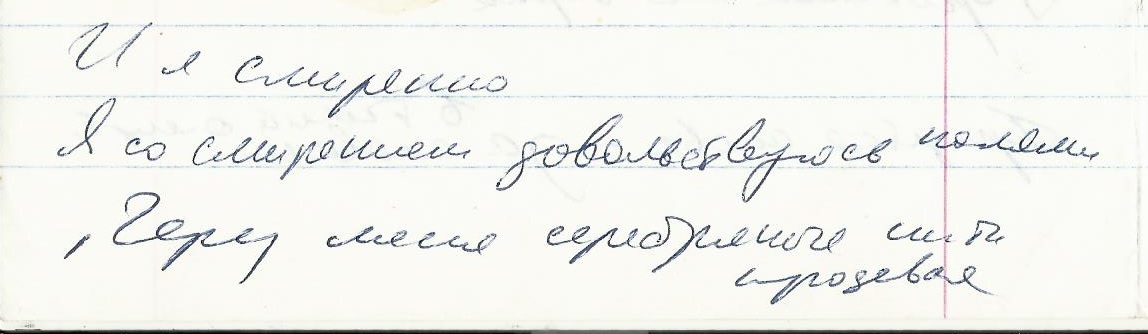 И я смиренно
Я со смирением довольствуюсь полями
, Через меня серебряные нити
продевая